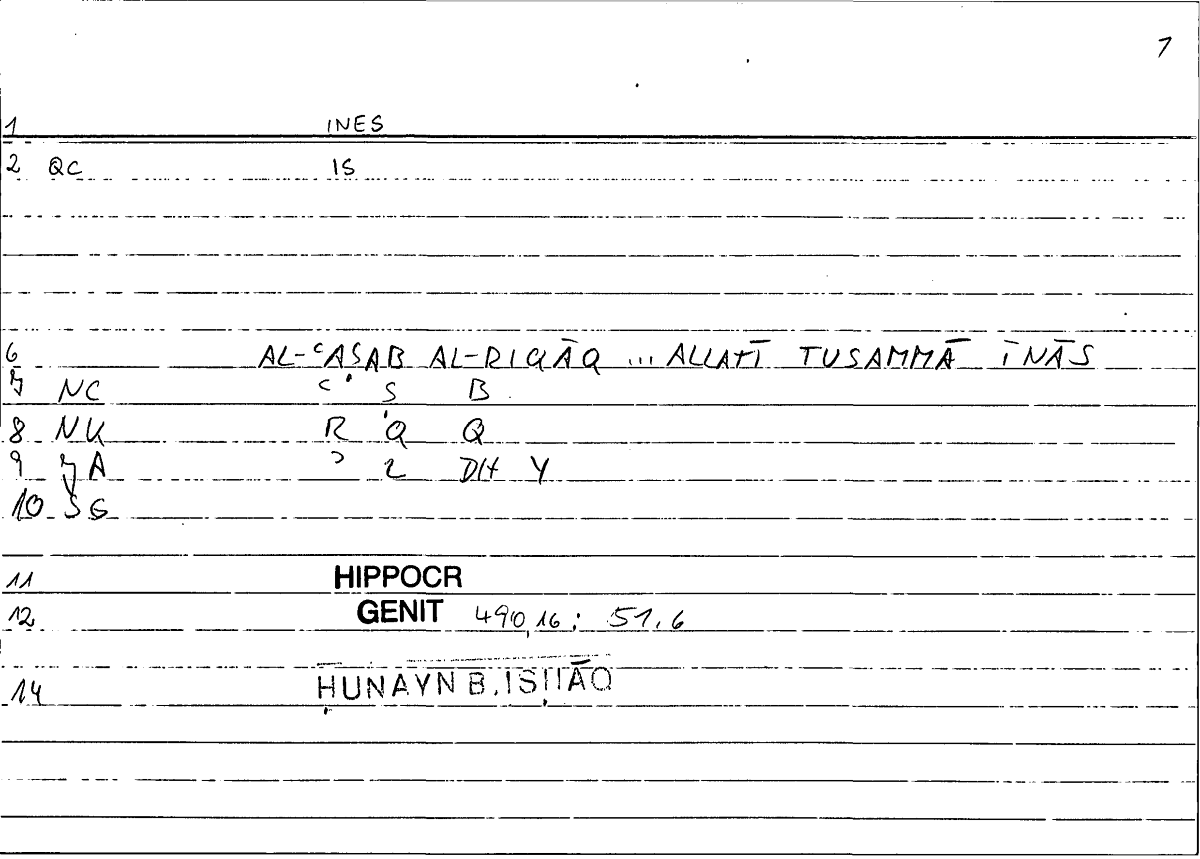 1
1 INES
2 QC IS
6 AL-ʿAṢAB AL-RIQĀQ ... ALLATĪ TUSAMMĀ ĪNĀS
7 NC ʿ Ṣ B
8 NK R Q Q
9 A ʾ L DH Y
10 SG
11 HIPPOCR
12 GENIT 490,16 : 51.6
14 ḤUNAYN B. ISḤĀQ